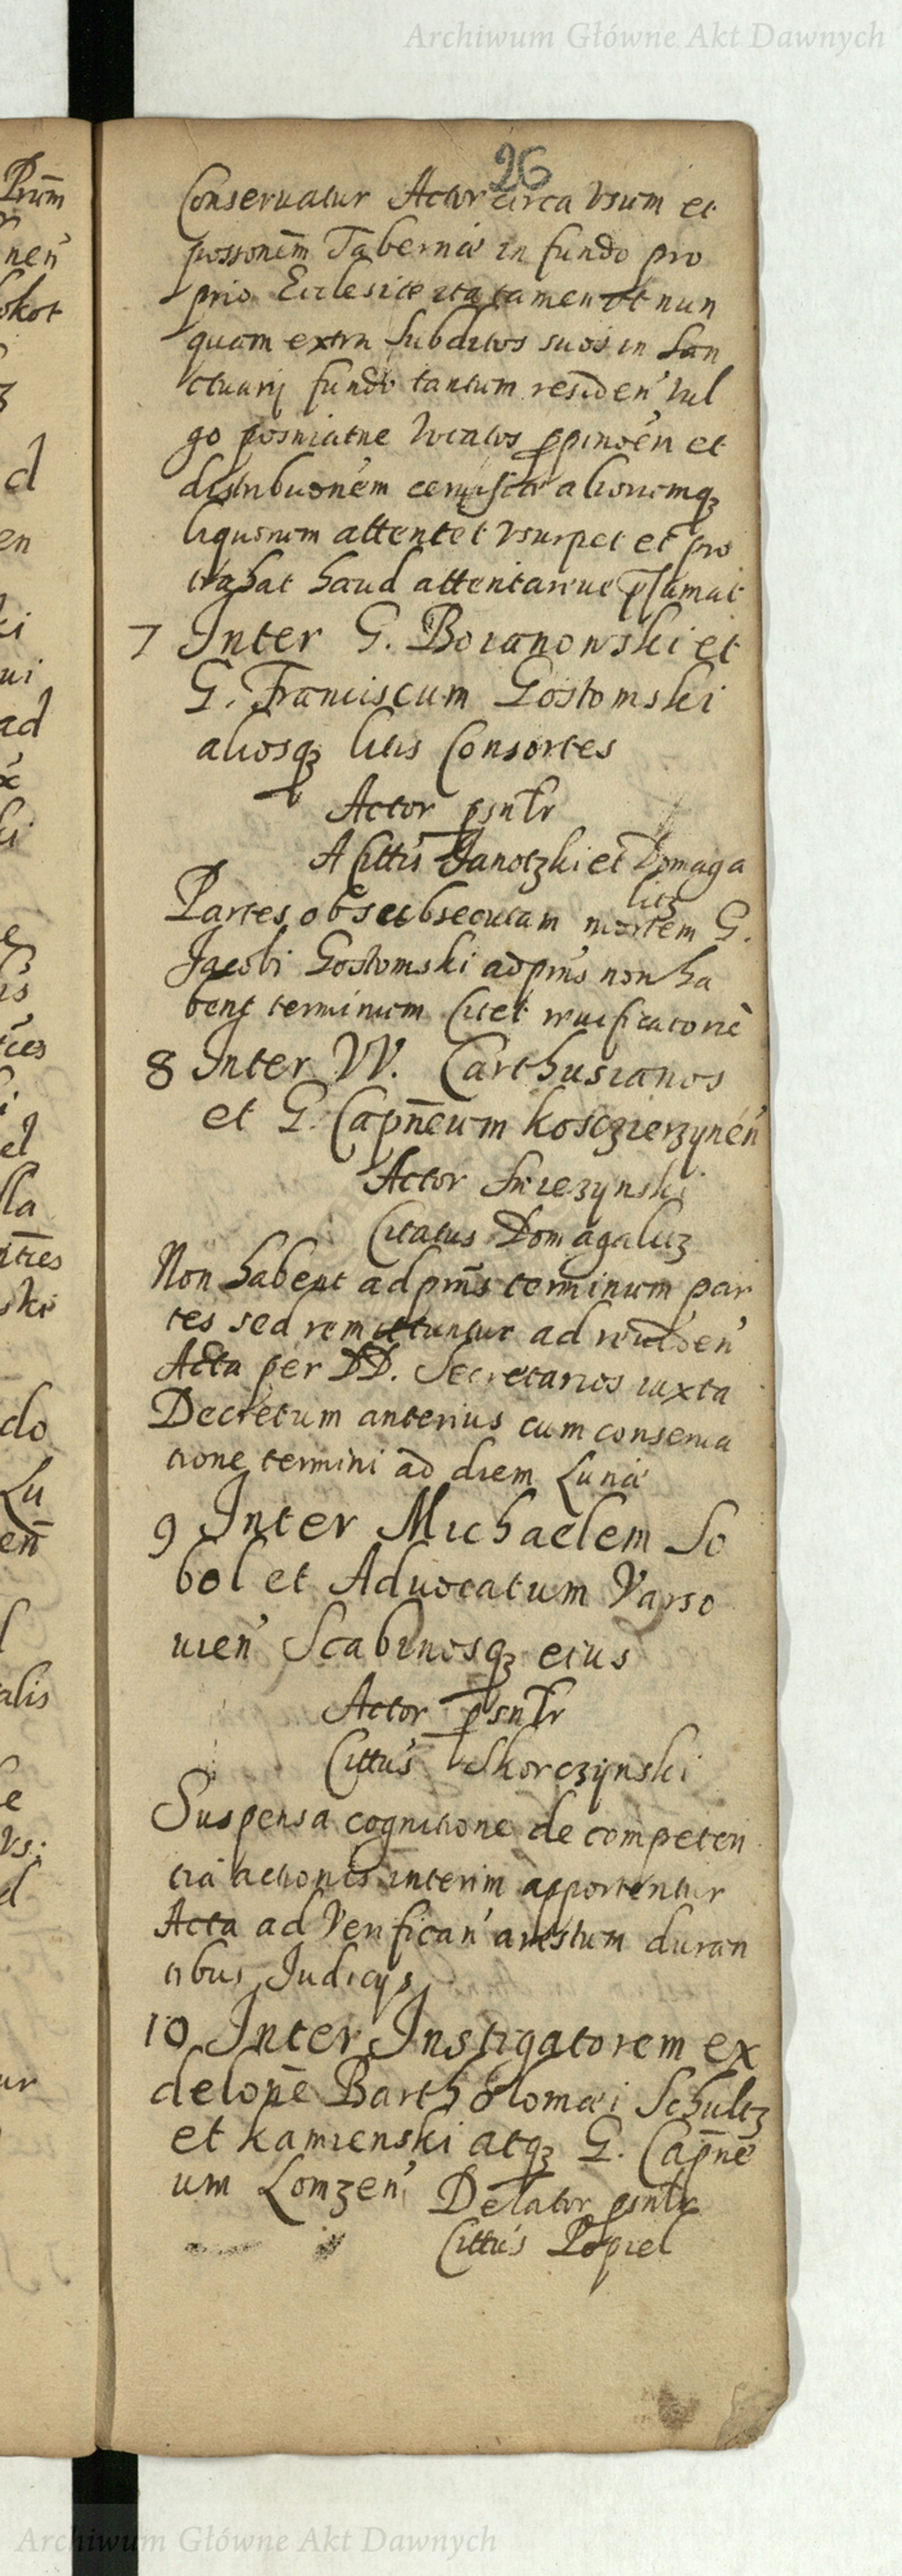 Archiwum Główne Akt Dawnych
26
Conseruatur Actor circa Vsum et
possonēm Tabernæ in fundo pro
prio Ecclesiæ ita tamen vt nun
quam extra subditos suos in San
ctuarij fundo tantum residen' vul
go posniatne locatos ꝓpinõen et
distribuonēm ceruisiæ aliorumqꝫ
liquorum attentet Vsurpet et pro
trahat haud attentareue p̄sumat
7 Inter G. Boianowski et
G. Franciscum Gostomski
aliosqꝫ litis Consortes
Actor psnlr
A Cittis Janotzki et Domaga
litz
Partes ob subsecutam mortem G.
Jacobi Gostomski ad pm̄s non ha
bent terminum Citet reuificatoriè
8 Inter VV. Carthusianos
et G. Capn̄eum Kosczierzynēn
Actor Swiezynski
Citatus Domagalitz
Non habent ad pm̄s terminum par
tes sed remittuntur ad reuiden'
Acta per DD. Secretarios iuxta
Decretum anterius cum conserua
tione termini ad diem Lunæ
9 Inter Michaelem So
bol et Aduocatum Varso
uien' Scabinosqꝫ eius
Actor psnlr
Cittus Skorczynski
Suspensa cognitione de competen
tia actionis interim apportentur
Acta ad Verifican' arestum duran
tibus Judicijs
10 Inter Instigatorem ex
delonē Bartholomæi Schultz
et Kamienski atqꝫ G. Capn̄e
um Lomzen'
Delator psnlr
Cittus Popiel
Prūm
nen'
okot
d
en
ki
ui
ad
ki
el
lla
ski
do
Lu
en̄
alis
Vs:
ur
Archiwum Główne Akt Dawnych